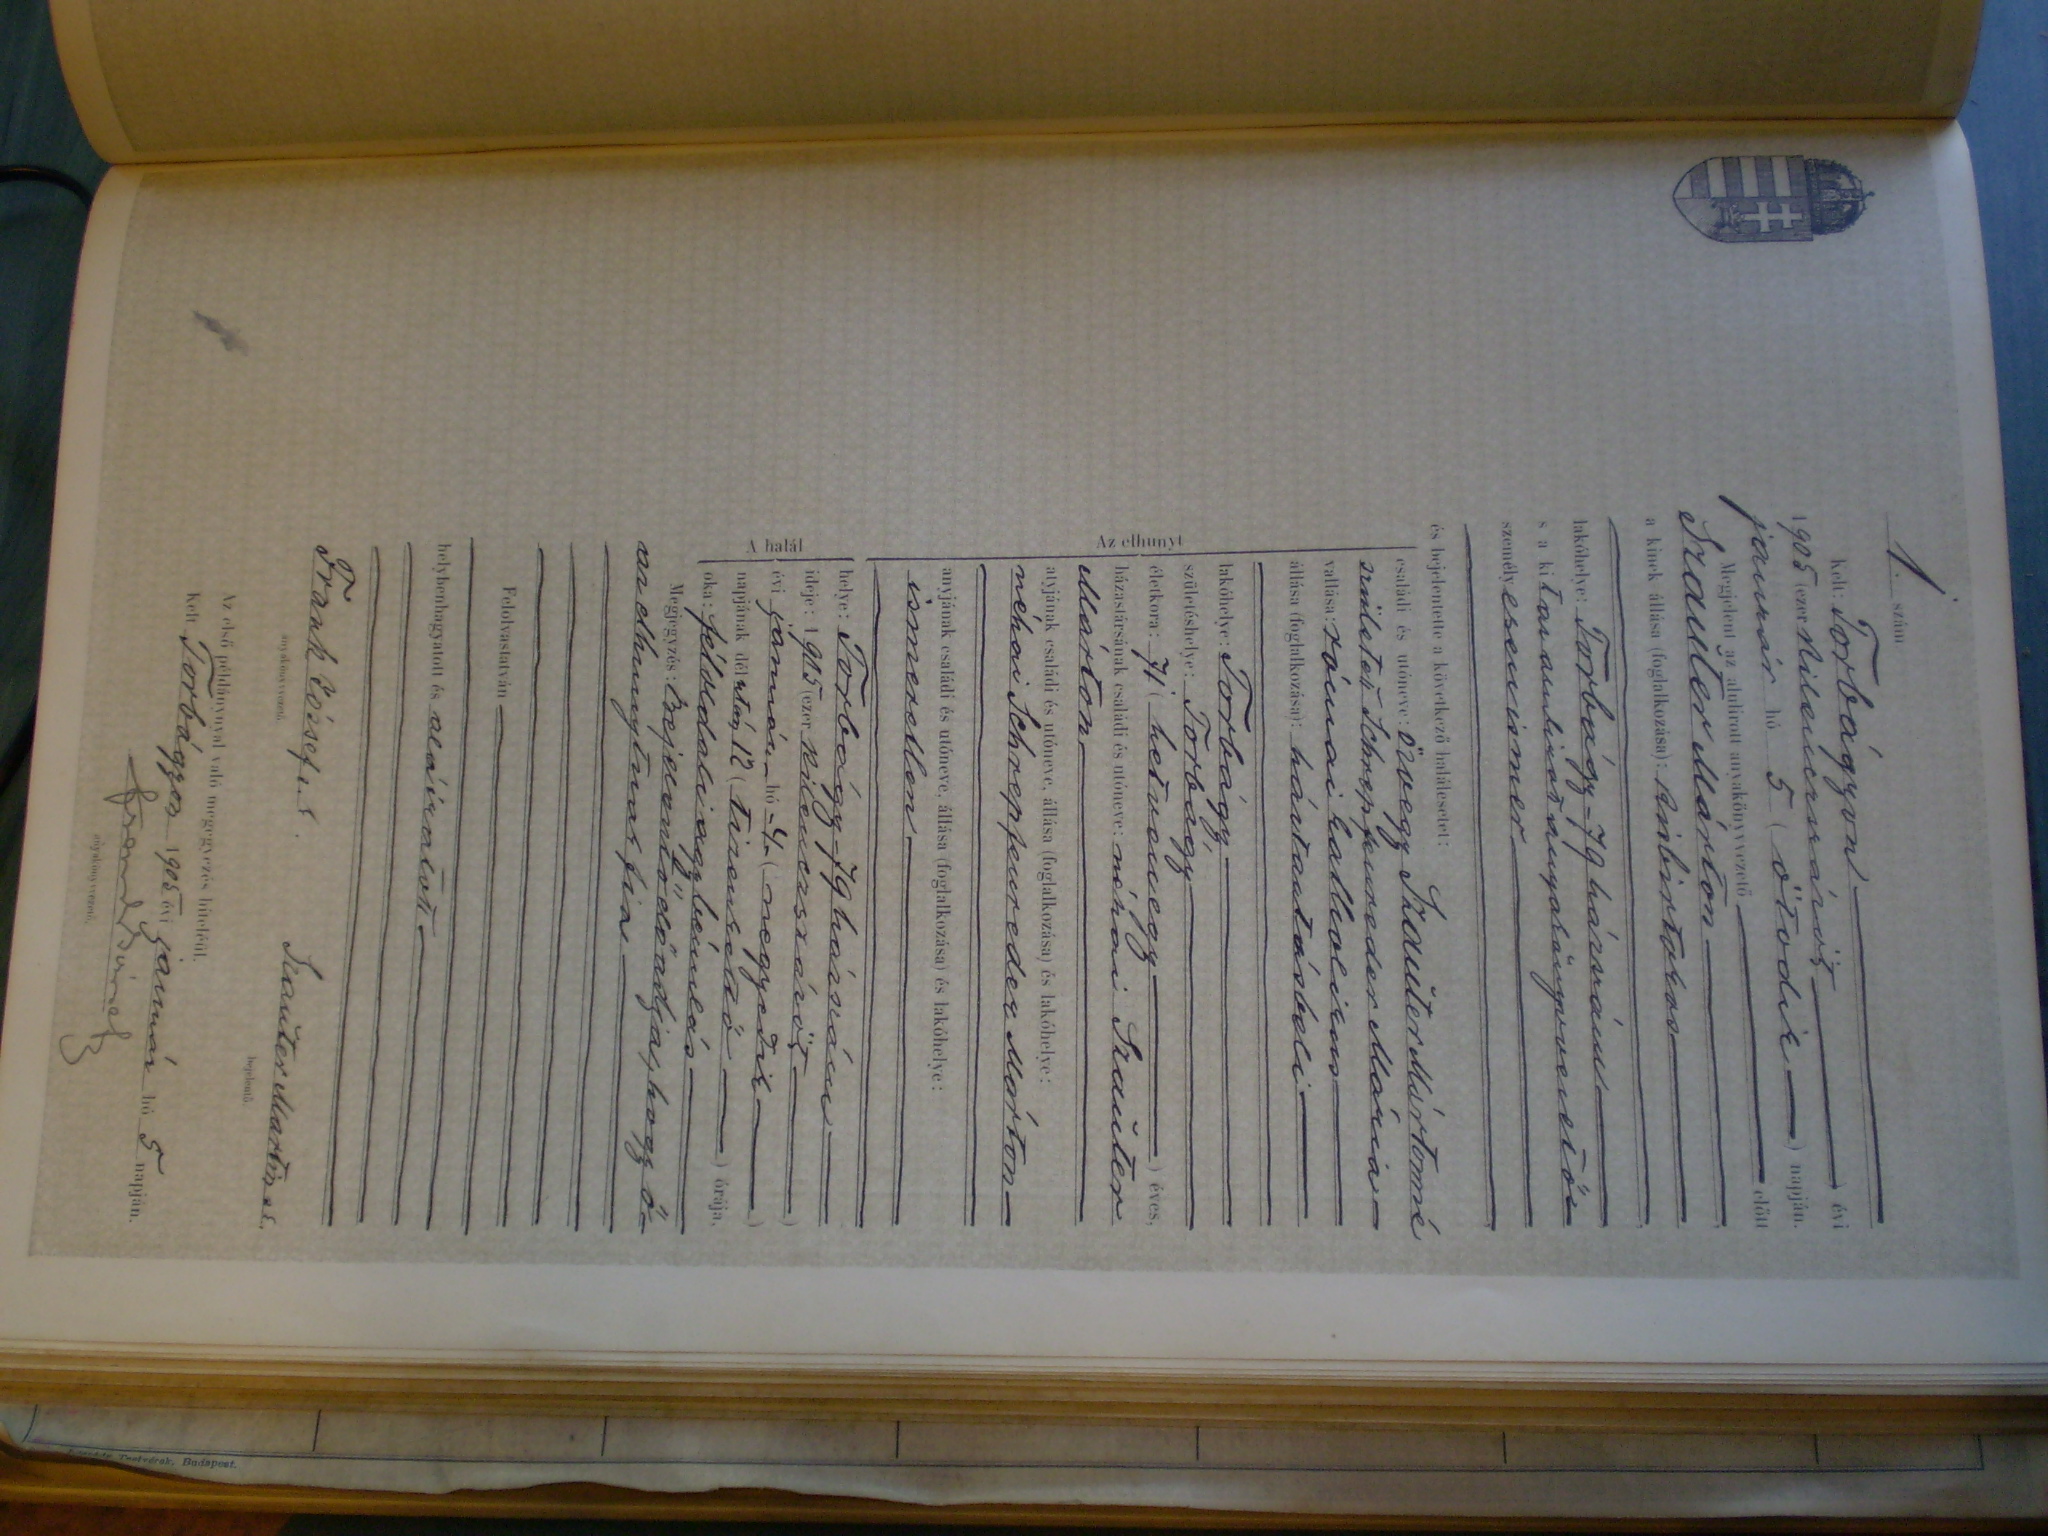 1. szám
Kelt: Torbágyon
1905 (ezer kilencszázöt) évi
január hó 5 (ötödik) napján.
Megjelent az alulírott anyakönyvvezető előtt
Szauter Márton
a kinek állása (foglalkozása): kisbirtokos
lakóhelye: Torbágy 79 házszám
s a kit az aulirott anyakönyvvezetős
személyesen ismer
és bejelentette a következő halálesetet:
Az elhunyt
családi és utóneve: özvegy Szauter Mártonné
született Schreppeneder Mária
vallása: római katholicus
állása (foglalkozása): háztartásbeli
lakóhelye: Torbágy
születéshelye: Torbágy
életkora: 71 (hetvenegy) éves,
házastársának családi és utóneve: néhai Szauter
Márton
atyjának családi és utóneve, állása (foglalkozása) és lakóhelye:
néhai Schreppeneder Márton
anyjának családi és utóneve, állása (foglalkozása) és lakóhelye:
ismeretlen
A halál
helye: Torbágy 79 házszám
ideje: 1905 (ezer kilencszázöt)
évi január hó 4 (negyedik)
napjának dél után 12 (tizenkettő) órája,
oka: féloldali agybénulás
Megjegyzés: Bejelentő előadja, hogy ő
az elhunytnak fia
Felolvastatván
helybenhagyatott és aláíratott
Frank József s.k.
anyakönyvvezető.
Szauter Martin s.k.
bejelentő.
Az első példánynyal való megegyezés hiteléül.
Kelt Torbágyon 1905 évi január hó 5 napján.
Frank József
anyakönyvvezető.
Testvérek, Budapest.